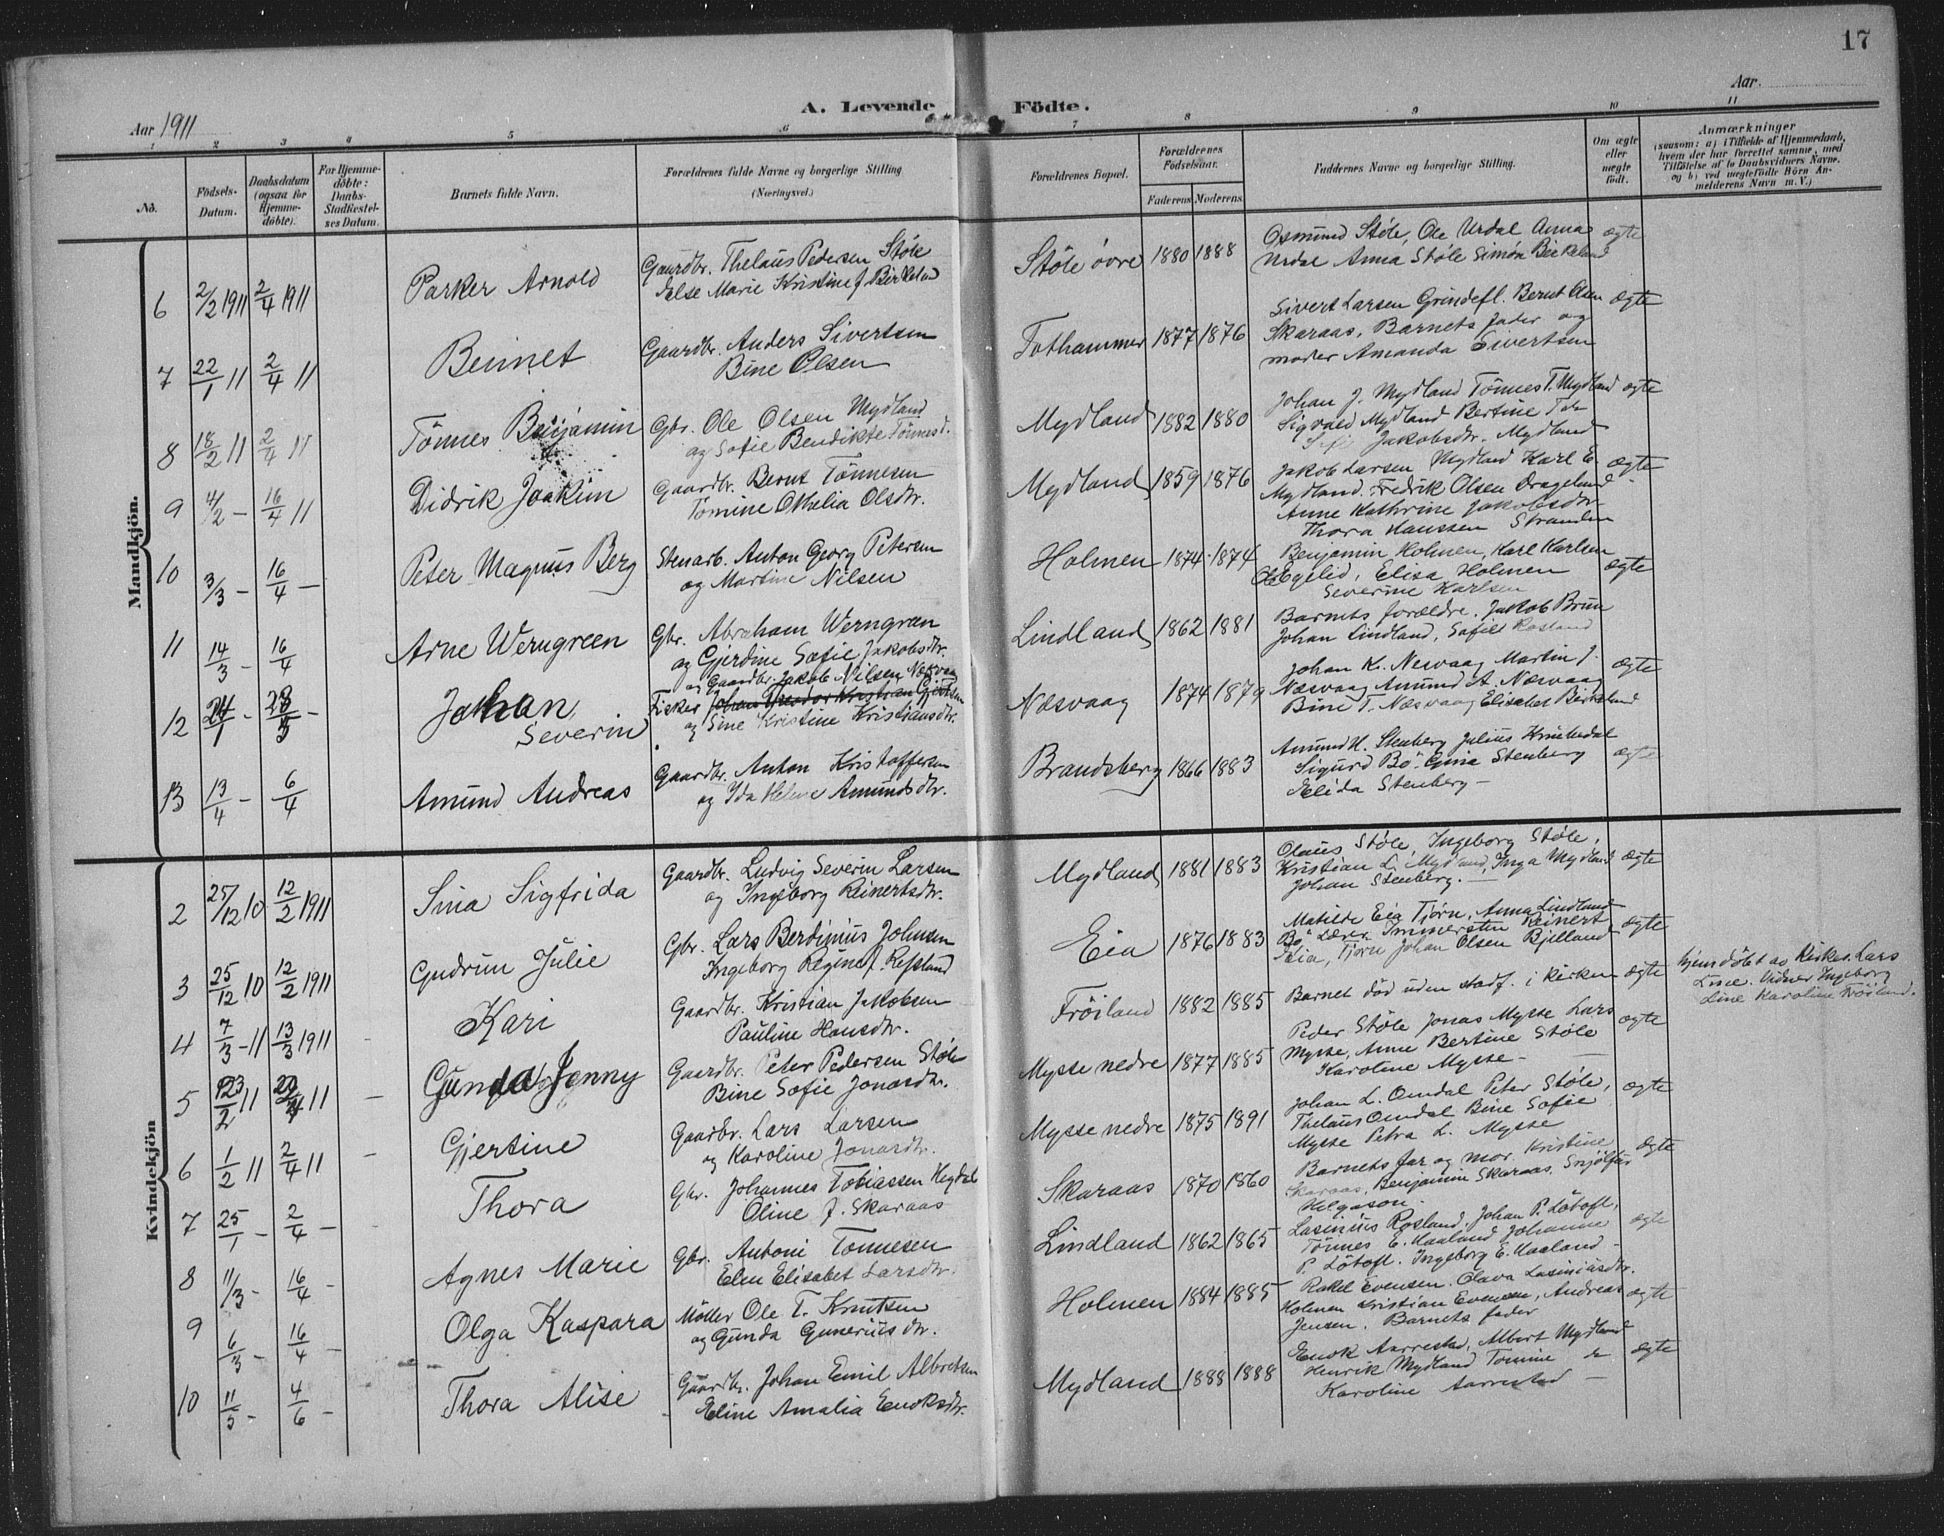 17
A. Levende Födte.
Aar 1911
Aar.
1 2 3 4 5 6 7 8 9 10 11
No.
Födsels-Datum.
Daabsdatum (ogsaa for Hjemmedöbte).
For Hjemmedöbte: Daabs-Stadfæstelses Datum.
Barnets fulde Navn.
Forældrenes fulde Navne og borgerlige Stilling (Næringsvei.)
Forældrenes Bopæl.
Forældrenes Födselsaar.
Faderens Moderens
Faddernes Navne og borgerlige Stilling.
Om ægte eller uægte födt.
Anmærkninger
(saasom: a) i Tilfælde af Hjemmedaab, hvem der har forrettet samme, med Tilföielse af to Daabsvidners Navne, og b) ved uægtefödte Börn Anmelderens Navn m. V.)
Mandkjön.
6 2/2 1911 2/4 1911 Parker Arnold
Gaardbr. Thelaus Pedersen Støle
Else Marie Kristine J. Birkeland
Støle øvre 1880 1888
Osmund Støle, Ole Urdal Anna
Urdal Anna Støle Simon Birkeland
ægte
7 22/1 11 2/4 11 Bennet
Gaardbr. Anders Sivertsen
Bine Olsen
Tothammer 1877 1876
Sivert Larsen Grindefl. Bernt Olsen
Skaraas, Barnets fader og
moder Amanda Sivertsen
ægte
8 18/2 11 2/4 11 Tönnes Benjamin
Gbr. Ole Olsen Mydland
og Sofie Bendikte Tönnesd.
Mydland 1882 1880
Johan J. Mydland Tönnes T. Mydland
Sigvald Mydland Bertine T do
Jakobsdtr. Mydland
ægte
9 4/2 - 16/4 11 Didrik Joakim
Gaardbr. Bernt Tönnesen
Tomine Othelia Olsdtr.
Mydland 1859 1876
Jakob Larsen Mydland Karl E.
Mydland. Fredrik Olsen Drageland
Anne Kathrine Jakobsdtr
Thora Hanssen Stranden
ægte
10 3/3 - 16/4 - Peter Magnus Berg
Stenarb. Anton Georg Petersen
og Martine Nilsen
Holmen 1874 1874
Benjamin Holmen, Karl Karlsen
Ole Egelid, Elisa Holmen
Severine Karlsen
ægte
11 14/3 - 16/4 Arne Werngreen
Gbr. Abraham Werngren
og Gjerdine Sofie Jakobsdtr.
Lindland 1862 1881
Barnets forældre. Jakob Brun
Johan Lindland, Sofie Rosland
12 24/1 - 28/3 - Johan Severin
Gaardbr. Jakob Nilsen Næsvaag
Fisker Johan Theodor Kristian Gjertsen
og Sine Kristine Kristiansdtr.
Næsvaag 1874 1879
Johan K. Nesvaag Martin J.
Næsvaag Amund A. Næsvaag
Bine T. Næsvaag Elisabet Birkeland
ægte
13 13/4 - 6/4 Amund Andreas
Gaardbr. Anton Kristoffersen
og Ida Helene Amundsdtr.
Brandsberg 1866 1883
Amund H. Stenberg Julius Kvinhedal
Sigurd Bö Gina Stenberg
Elida Stenberg -
ægte
Kvindekjön
2 25/12 10 12/2 1911 Sina Sigfrida
Gaardbr. Ludvig Severin Larsen
og Ingeborg Reinertsdtr.
Mydland 1881 1883
Olaus Støle, Ingeborg Støle,
Kristian L. Mydland, Inga Mydland
Johan Stenberg. -
ægte
3 25/12 10 12/2 1911 Gudrun Julie
Gbr. Lars Berdinius Johnsen
Ingeborg Regine J. Refsland
Eia 1876 1883
Matilde Eia Tjörn, Anna Lindland
Bö Lærer Immerstein Reinert
Eia, Tjörn Johan Olsen Bjelland
ægte
4 7/3 - 11 13/3 1911 Kari
Gaardbr. Kristian Jakobsen
Pauline Hansdtr.
Fröiland 1882 1885
Barnet död uden stadf. i kirken
ægte
hjemdöbt av Kirkes. Lars
Lisce. Vidner Ingeborg
Line Karoline Fröiland.
5 23/2 11 2/4 11 - Gunda Jenny
Gaardbr. Peter Pedersen Støle
Bine Sofie Jonasdtr.
Mysse nedre 1877 1885
Peder Støle Jonas Mysse Lars
Mysse, Anne Bertine Støle
Karoline Mysse -
ægte
6 1/2 11 2/4 11 - Gjertine
Gaardbr. Lars Larsen
og Karoline Jonasdtr.
Mysse nedre 1875 1891
Johan L. Omdal Peter Støle,
Thelaus Omdal Bine Sofie
Mysse Petra L. Mysse
ægte
7 25/1 - 2/4 - Thora
Gbr. Johannes Tobiassen Hegdal
Oline J. Skaraas
Skaraas 1870 1860
Barnets far og mor. Kristine
Skaraas, Benjamin Skaraas, Snjólfur
Helgason.
ægte
8 11/3 - 16/4 - Agnes Marie
Gbr. Antoni Tonnesen
Elen Elisabet Larsdtr.
Lindland 1862 1865
Lasinius Rosland, Johan P. Lötofl,
Tönnes E. Haaland Johanne
P. Lötofl. Ingeborg E. Haaland -
ægte
9 6/3 - 16/4 - Olga Kaspara
Möller Ole T. Knutsen
og Gunda Guneriusdtr.
Holmen 1884 1885
Rakel Evensen. Olava Lasiniasdtr.
Holmen Kristian Evensen, Andreas
Jensen. Barnets fader
ægte
10 11/5 - 4/6 - Thora Alise
Gaardbr. Johan Emil Albretsen
Eline Amalia Enoksdtr.
Mydland 1888 1888
Enok Aarrestad, Albert Mydland
Henrik Mydland Tomine do
Karoline Aarrestad -
ægte